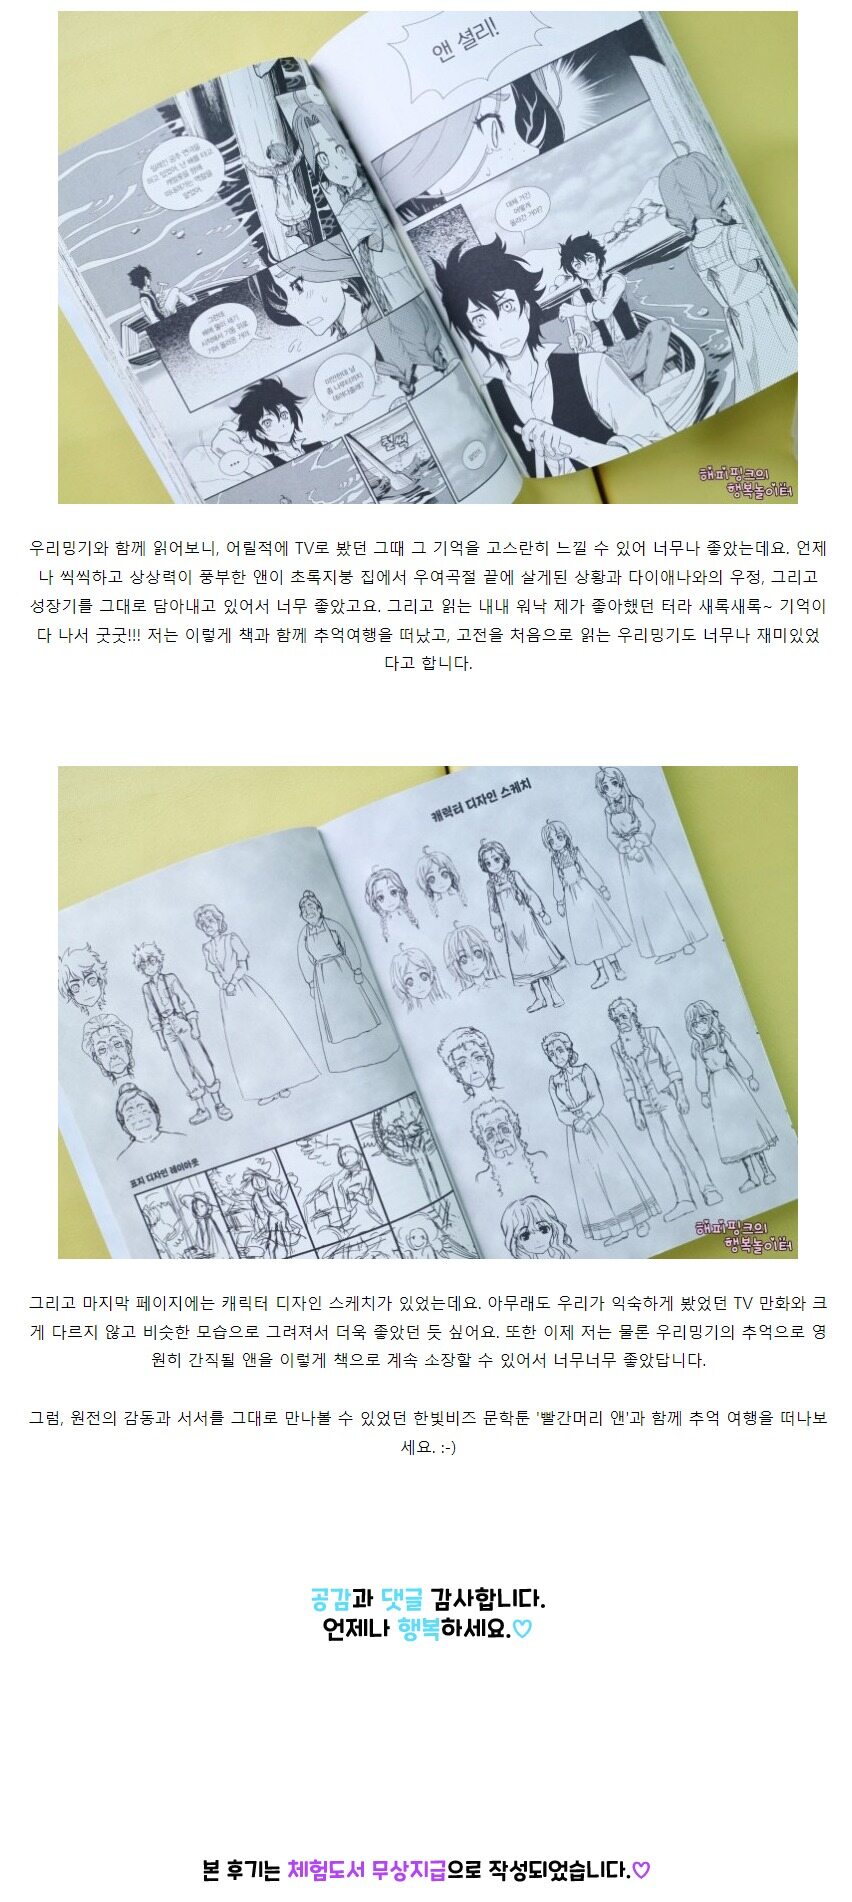 앤 셜리!
대체 거긴
어떻게
올라간 거야?
그런데
배에 물이 새기
시작해서 기둥 위로
기어 올라온 거야.
미안한데 날
좀 나루터까지
데려다줄래?
철썩
해피핑크의
행복놀이터
우리밍기와 함께 읽어보니, 어릴적에 TV로 봤던 그때 그 기억을 고스란히 느낄 수 있어 너무나 좋았는데요. 언제
나 씩씩하고 상상력이 풍부한 앤이 초록지붕 집에서 우여곡절 끝에 살게된 상황과 다이애나와의 우정, 그리고
성장기를 그대로 담아내고 있어서 너무 좋았고요. 그리고 읽는 내내 워낙 제가 좋아했던 터라 새록새록~ 기억이
다 나서 굿굿!!! 저는 이렇게 책과 함께 추억여행을 떠났고, 고전을 처음으로 읽는 우리밍기도 너무나 재미있었
다고 합니다.
캐릭터 디자인 스케치
표지 디자인 레이아웃
해피핑크의
행복놀이터
그리고 마지막 페이지에는 캐릭터 디자인 스케치가 있었는데요. 아무래도 우리가 익숙하게 봤었던 TV 만화와 크
게 다르지 않고 비슷한 모습으로 그려져서 더욱 좋았던 듯 싶어요. 또한 이제 저는 물론 우리밍기의 추억으로 영
원히 간직될 앤을 이렇게 책으로 계속 소장할 수 있어서 너무너무 좋았답니다.
그럼, 원전의 감동과 서서를 그대로 만나볼 수 있었던 한빛비즈 문학툰 '빨간머리 앤'과 함께 추억 여행을 떠나보
세요. :-)
공감과 댓글 감사합니다.
언제나 행복하세요.♡
본 후기는 체험도서 무상지급으로 작성되었습니다.♡